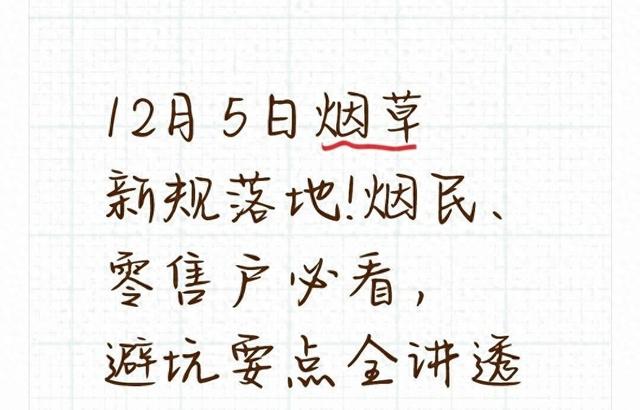 12月5日烟草
新规落地!烟民、
零售户必看,
避坑要点全讲透